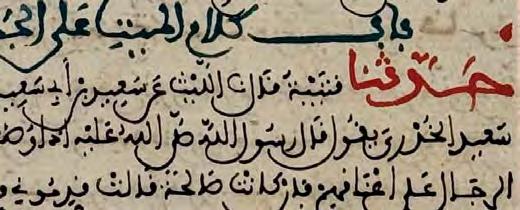 باب كلام الميت على الجنا
حدثنا قتيبة قال الليث عن سعيد بن أبي سعيد
سعيد الخدري يقول قال رسول الله صلى الله عليه اذا وضـ
الرجال على اعناقهم فإن كانت صالحة قالت قدموني و